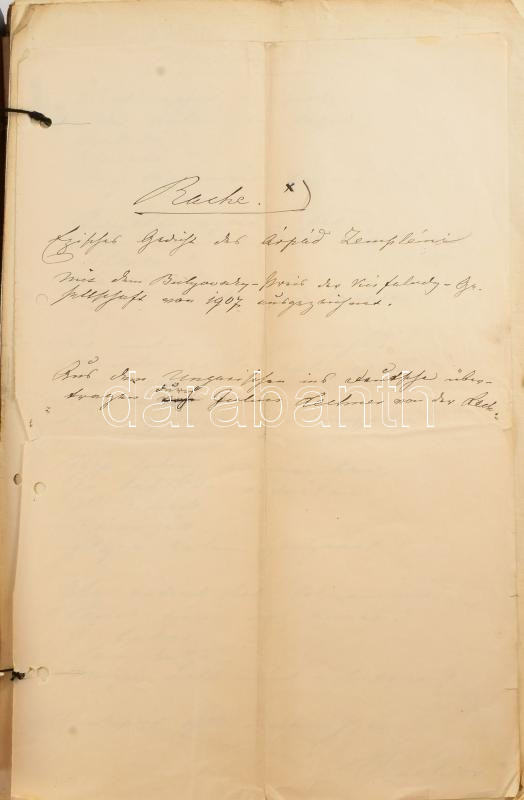 Rache. x)
Episches Gedicht des Árpád Zempléni
Mit dem Bulyovszky-Preis der Kisfaludy-Ge-
sellschaft von 1907. ausgezeichnet.
Aus dem Ungarischen ins Deutsche über-
tragen durch Julius Lechner von der Lech.
darabanth